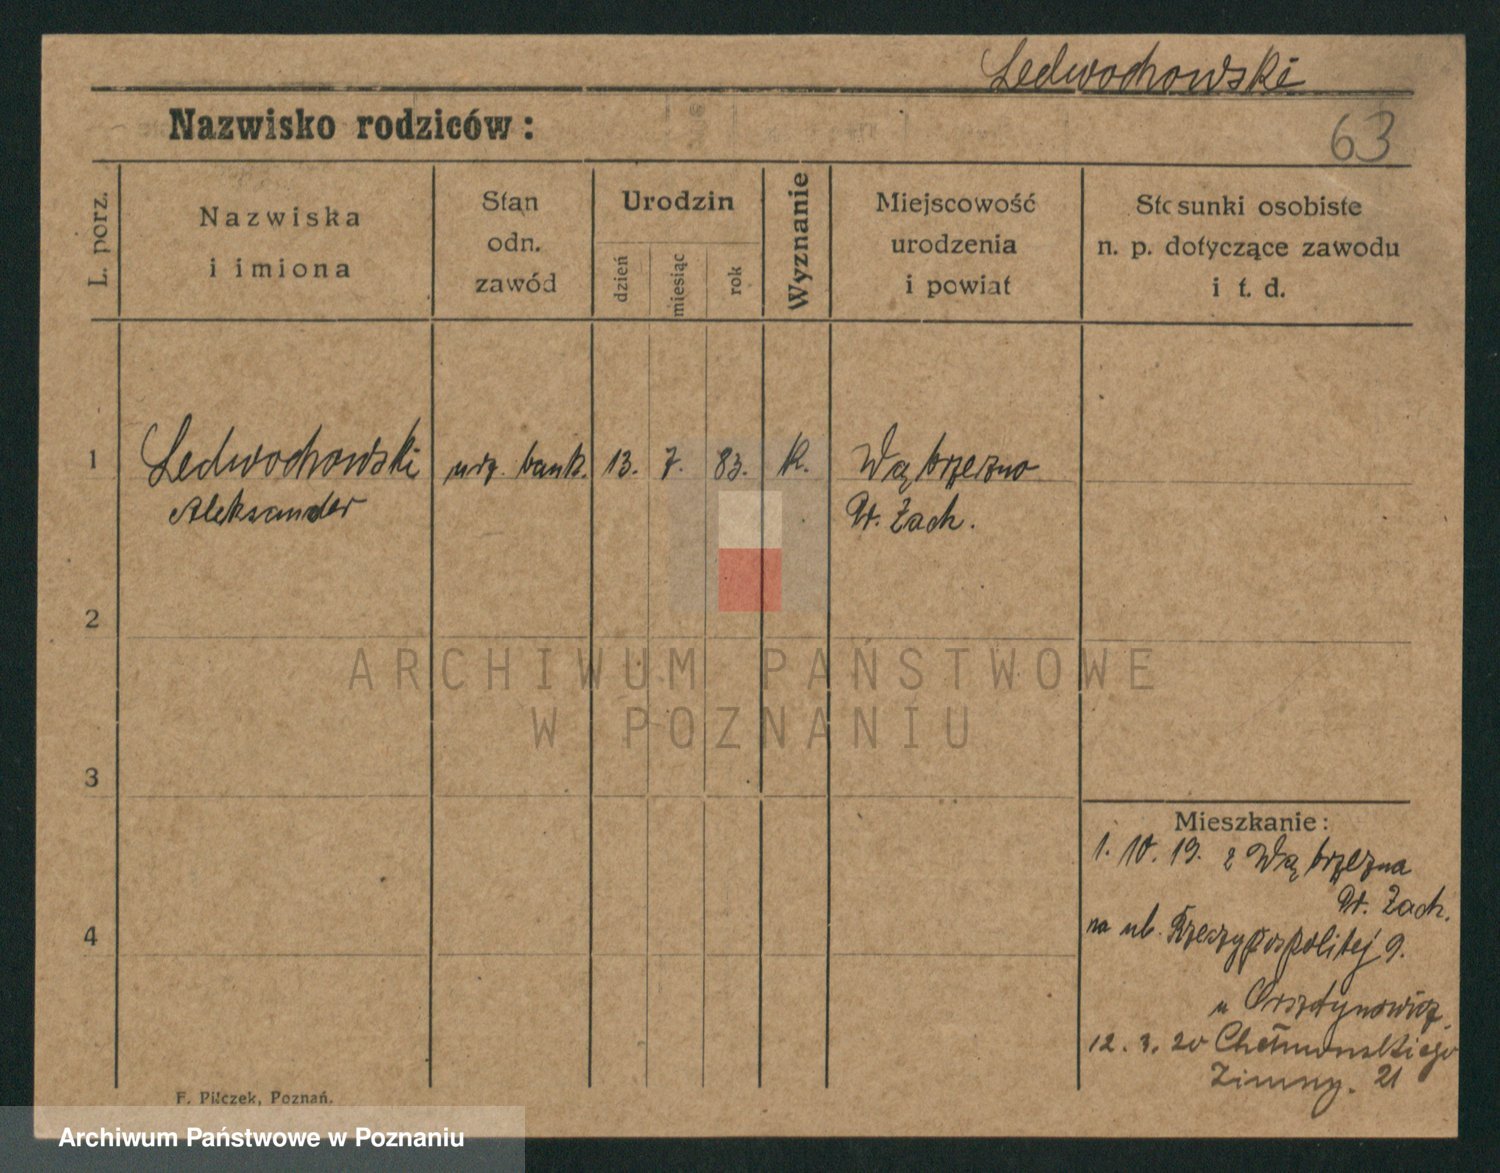 Ledwochowski
Nazwisko rodziców:
63
L. porz.
Nazwiska
i imiona
Stan
odn.
zawód
Urodzin
dzień
miesiąc
rok
Wyznanie
Miejscowość
urodzenia
i powiat
Stosunki osobiste
n. p. dotyczące zawodu
i t. d.
1
Ledwochowski
Aleksander
urz. bank.
13. 7. 83.
K.
Wąbrzezno
Pr. Zach.
2
3
4
ARCHIWUM PAŃSTWOWE
W POZNANIU
Mieszkanie:
1. 10. 19. z Wąbrzezna
Pr. Zach.
na ul. Rzeczypospolitej 9.
u
12. 3. 20 Chełmońskiego
21
F. Pilczek, Poznań.
Archiwum Państwowe w Poznaniu